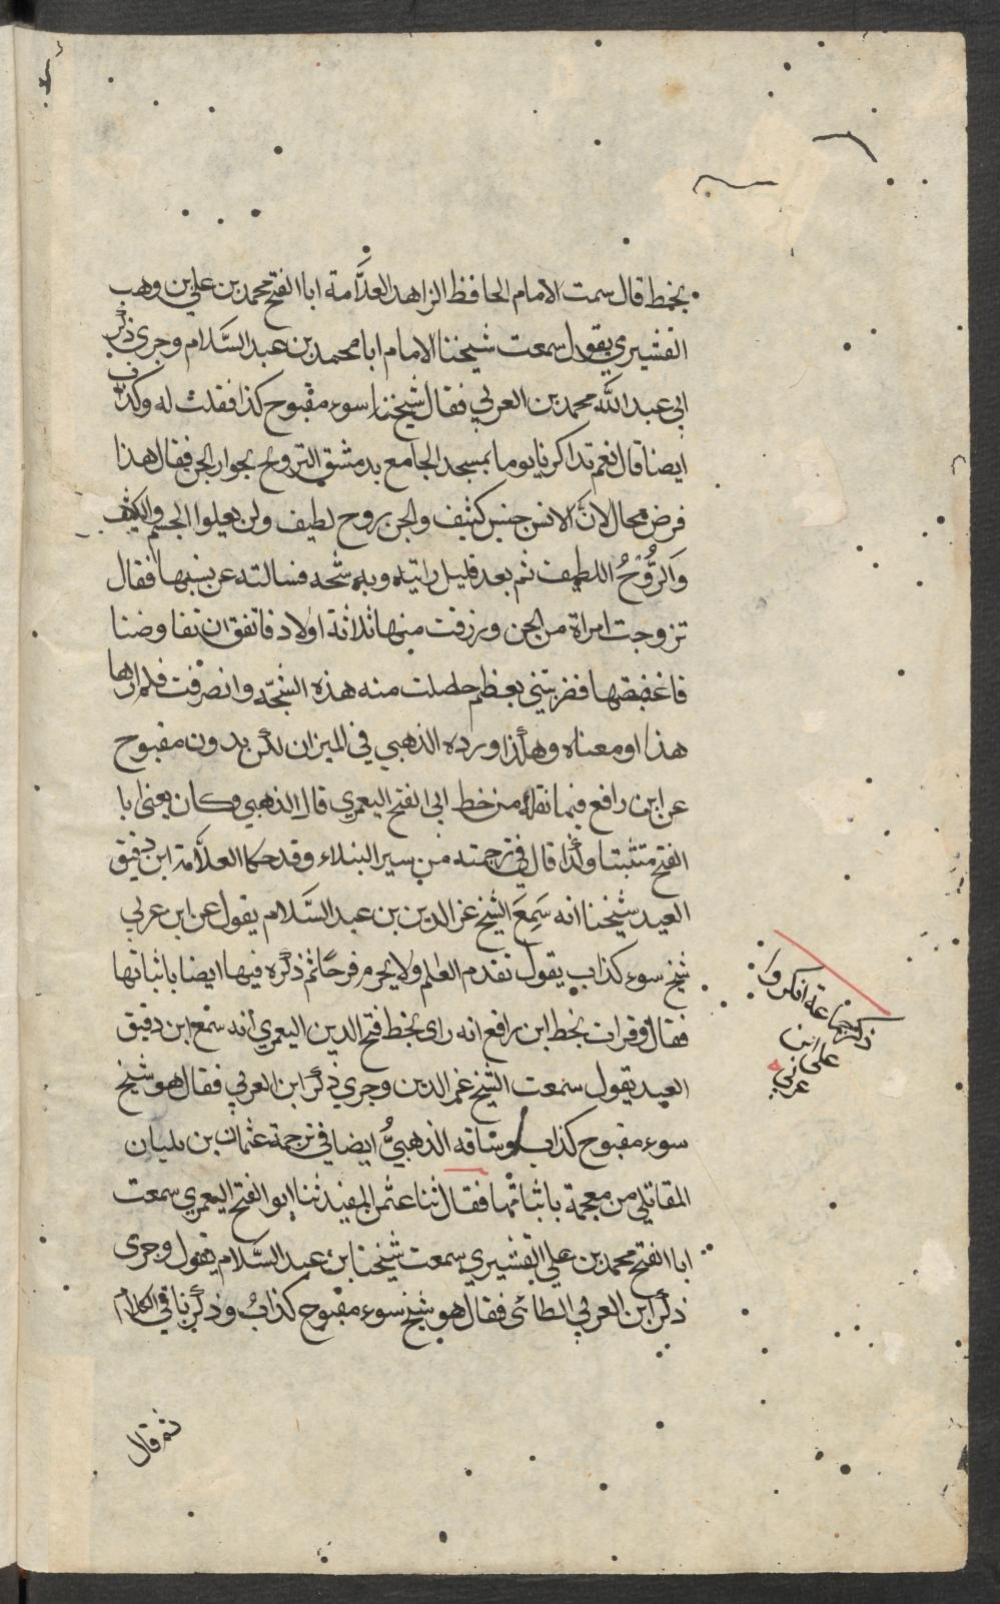 بخطه قال سمعت الامام الحافظ الزاهد العلَّامة ابا الفتح محمد بن علي بن وهب
القشيري يقول سمعت شيخنا الامام ابا محمد بن عبد السَّلام وجرى ذكر
ابي عبد الله محمد بن العربي فقال شيخنا سوء مقبوح كذا فقلت له وكذاب
ايضا قال نعم تذاكرنا يوما بمسجد الجامع بدمشق التزويج بجوار الجن فقال هذا
فرض محال لانَّ الانس جنس كثيف والجن روح لطيف ولن يعلوا الجسم والكثيف
وَالرُّوْحُ اللطيف ثم بعد قليل رايته وبه شجه فسالته عن سببها فقال
تزوجت امراة من الجن ورزقت منها ثلاثة اولاد فاتفق ان تفاوضنا
فاغضبتها فضربتني بعظم حصلت منه هذه الشجّه وانصرفت فلم ارها
هذا او معناه وهكذا ورده الذهبي في الميزان لكن بدون مقبوح
عن ابن رافع فيما نقله من خط ابي الفتح اليعمري قال الذهبي وكان يعني ابا
الفتح متثبتا ولذا قال في ترجمته من سير النبلاء وقد حكا العلَّامة ابن دقيق
العيد شيخنا انه سَمِعَ الشيخ عز الدين بن عبد السَّلام يقول عن ابن عربي
شيخ سوء كذاب يقول تقدم العالم ولا يحرم فرجًا ثم ذكره فيها ايضا باثباتها
فقال وقرات بخط ابن رافع انه راى بخط فتح الدين اليعمري انه سمع ابن دقيق
العيد يقول سمعت الشيخ عز الدين وجرى ذكر ابن العربي فقال هو شيخ
سوء مقبوح كذاب وساقه الذهبيُّ ايضا في ترجمة عثمان بن بلبان
المقاتلي من معجمة باثباتها فقال ثنا عثمن المفيد ثنا ابو الفتح اليعمري سمعت
ابا الفتح محمد بن علي القشيري سمعت شيخنا ابن عبد السَّلام يقول وجرى
ذكر ابن العربي الطائى فقال هو شيخ سوء مقبوح كذابُ وذكر باقي الكلام
ذكر جماعة انكروا
على ابن
عربي
ثم قال